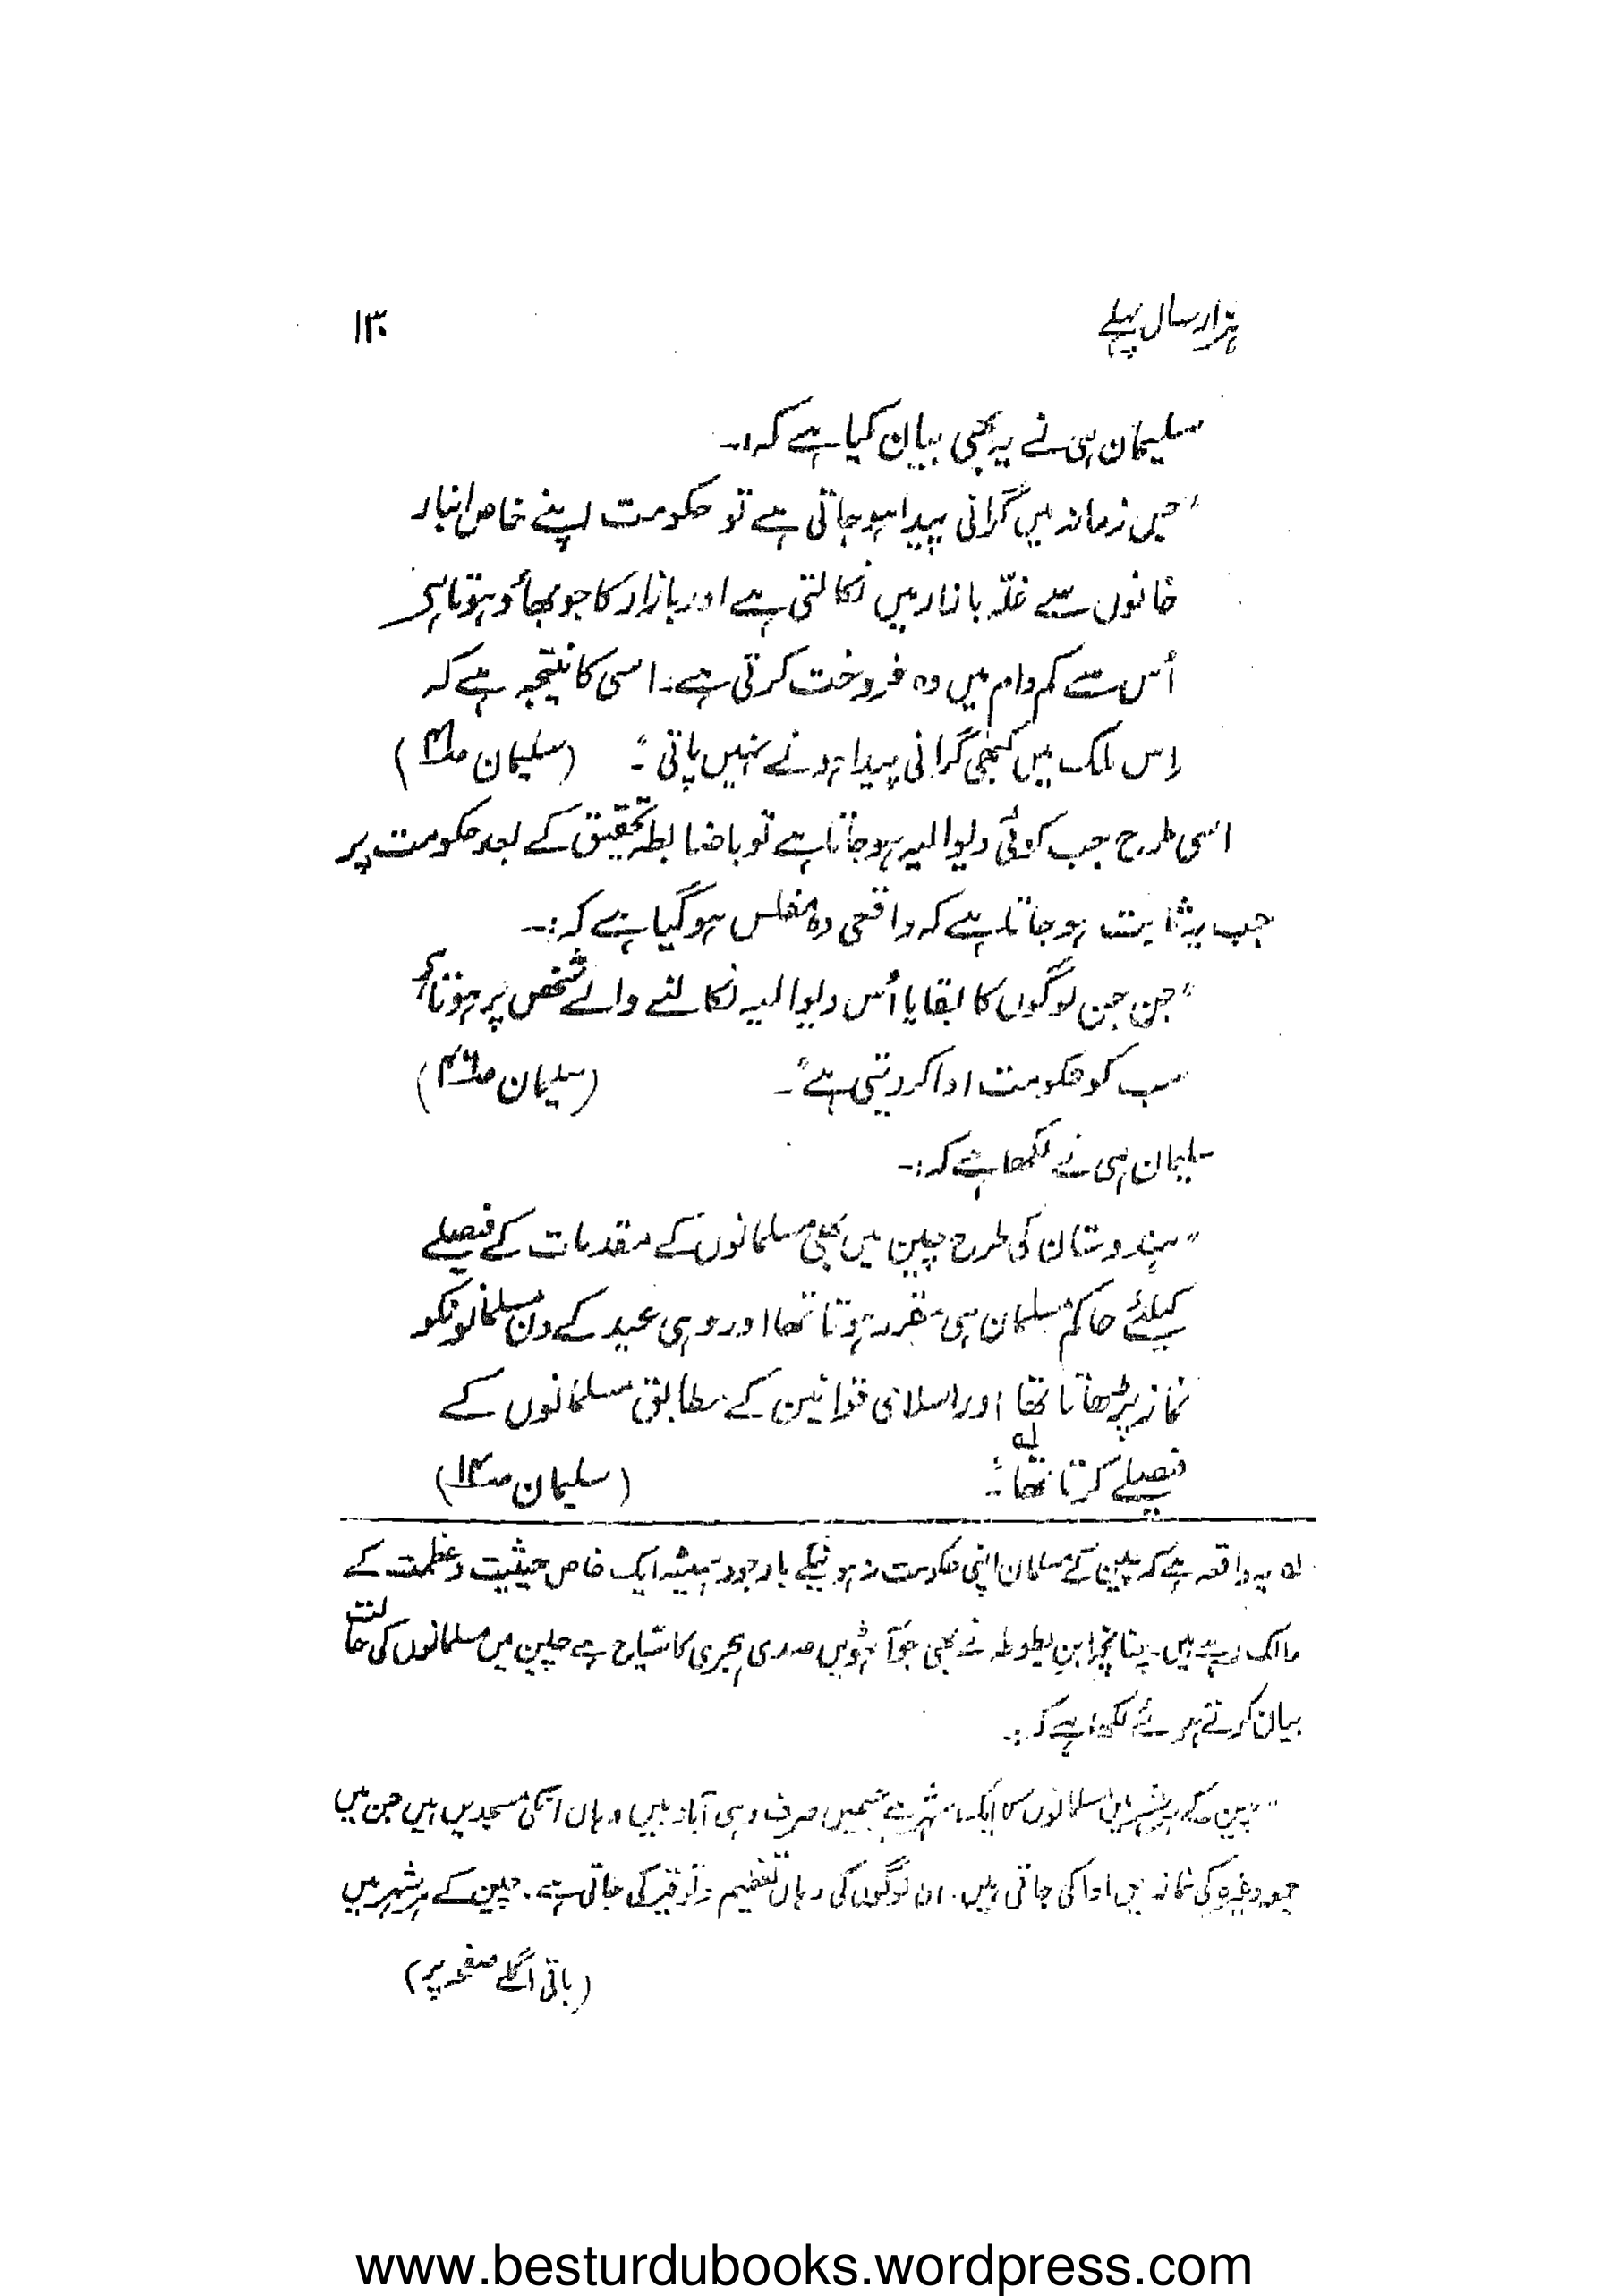 ہزار سال پہلے
۱۳۰
سلیمان ہی نے یہ بھی بیان کیا ہے کہ:۔
"جس زمانہ میں گرانی پیدا ہو جاتی ہے تو حکومت اپنے خاص انبار
خانوں سے غلّہ بازار میں نکالتی ہے اور بازار کا جو بھاؤ ہوتا ہے
اُس سے کم دام میں وہ فروخت کرتی ہے۔ اسی کا نتیجہ ہے کہ
اس ملک میں کبھی گرانی پیدا ہونے نہیں پاتی"۔ (سلیمان ص۴۱)
اسی طرح جب کوئی دیوالیہ ہو جاتا ہے تو باضابطہ تحقیق کے بعد حکومت پر
جب یہ ثابت ہو جاتا ہے کہ واقعی وہ مفلس ہو گیا ہے کہ:۔
"جن جن لوگوں کا بقایا اُس دیوالیہ نکالنے والے شخص پر ہوتا ہے
سب کو حکومت ادا کر دیتی ہے"۔ (سلیمان ص۴۶)
سلیمان ہی نے لکھا ہے کہ:۔
"ہندوستان کی طرح چین میں بھی مسلمانوں کے مقدمات کے فیصلے
کیلئے حاکم مسلمان ہی مقرر ہوتا تھا اور وہی عید کے دن مسلمانونکو
نماز پڑھاتا تھا اور اسلامی قوانین کے مطابق مسلمانوں کے
فیصلے کرتا تھا"۔ لہ (سلیمان ص۱۴)
لہ یہ واقعہ ہے کہ چین کے مسلمان اپنی حکومت نہ ہونیکے باوجود ہمیشہ ایک خاص حیثیت و عظمت کے
مالک رہے ہیں۔ چنانچہ ابن بطوطہ نے بھی جو آٹھویں صدی ہجری کا سیاح ہے چین میں مسلمانوں کی حالت
بیان کرتے ہوئے لکھا ہے کہ:۔
"چین کے ہر شہر میں مسلمانوں کا ایک شہر ہے جسمیں صرف وہی آباد ہیں وہاں انکی مسجدیں ہیں جن میں
جمعہ وغیرہ کی نمازیں ادا کی جاتی ہیں۔ ان لوگوں کی وہاں تعظیم و توقیر کی جاتی ہے۔ چین کے ہر شہر میں
(باقی اگلے صفحہ پر)
www.besturdubooks.wordpress.com